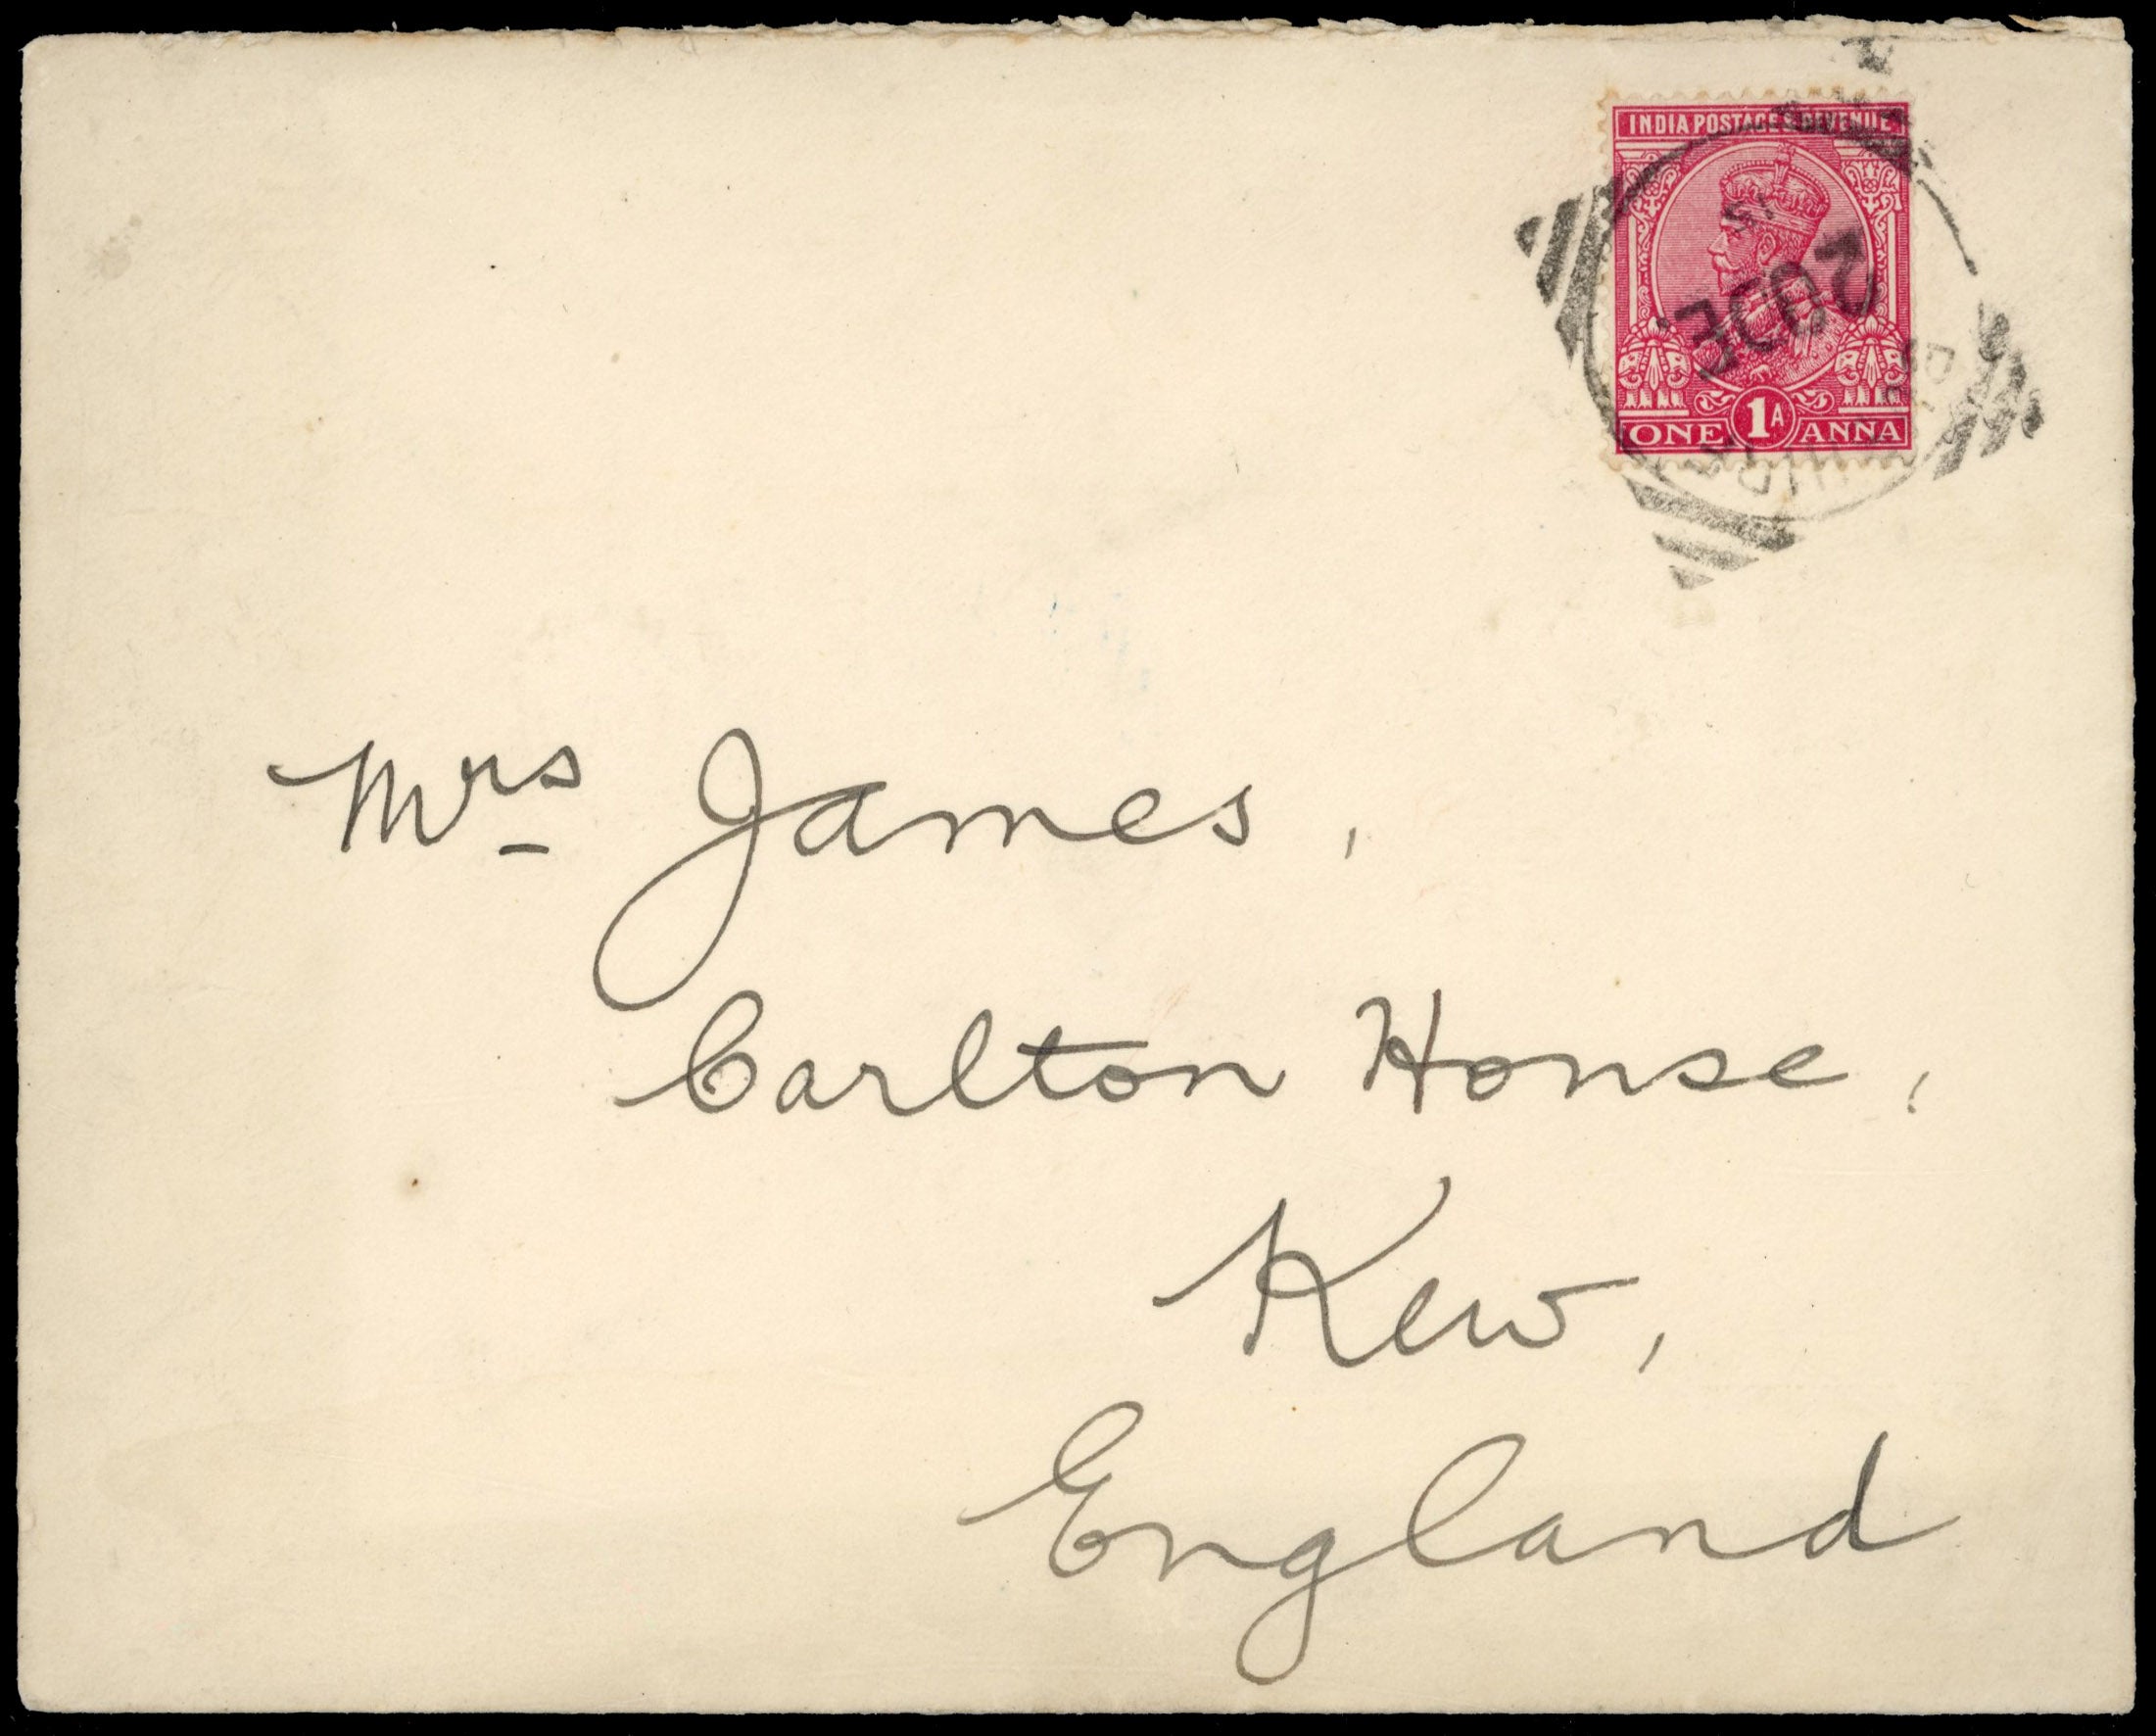 INDIA POSTAGE & REVENUE
15
20 DE
1A
ONE ANNA
Mrs James,
Carlton House,
Kew,
England